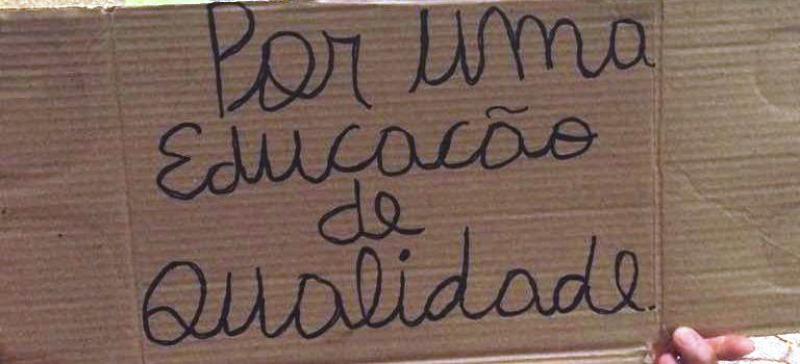 Por uma
Educacão
de
Qualidade.